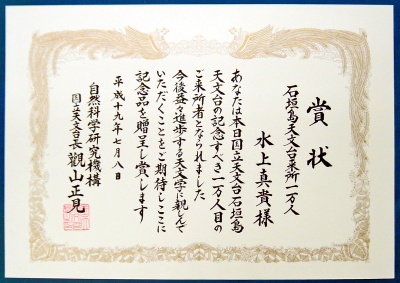 賞状
石垣島天文台来所一万人
水上真貴様
あなたは本日国立天文台石垣島
天文台の記念すべき一万人目の
ご来所者となられました
今後益々進歩する天文学に親しんで
いただくことをご期待しここに
記念品を贈呈し賞します
平成十九年七月八日
自然科学研究機構
国立天文台長 觀山正見